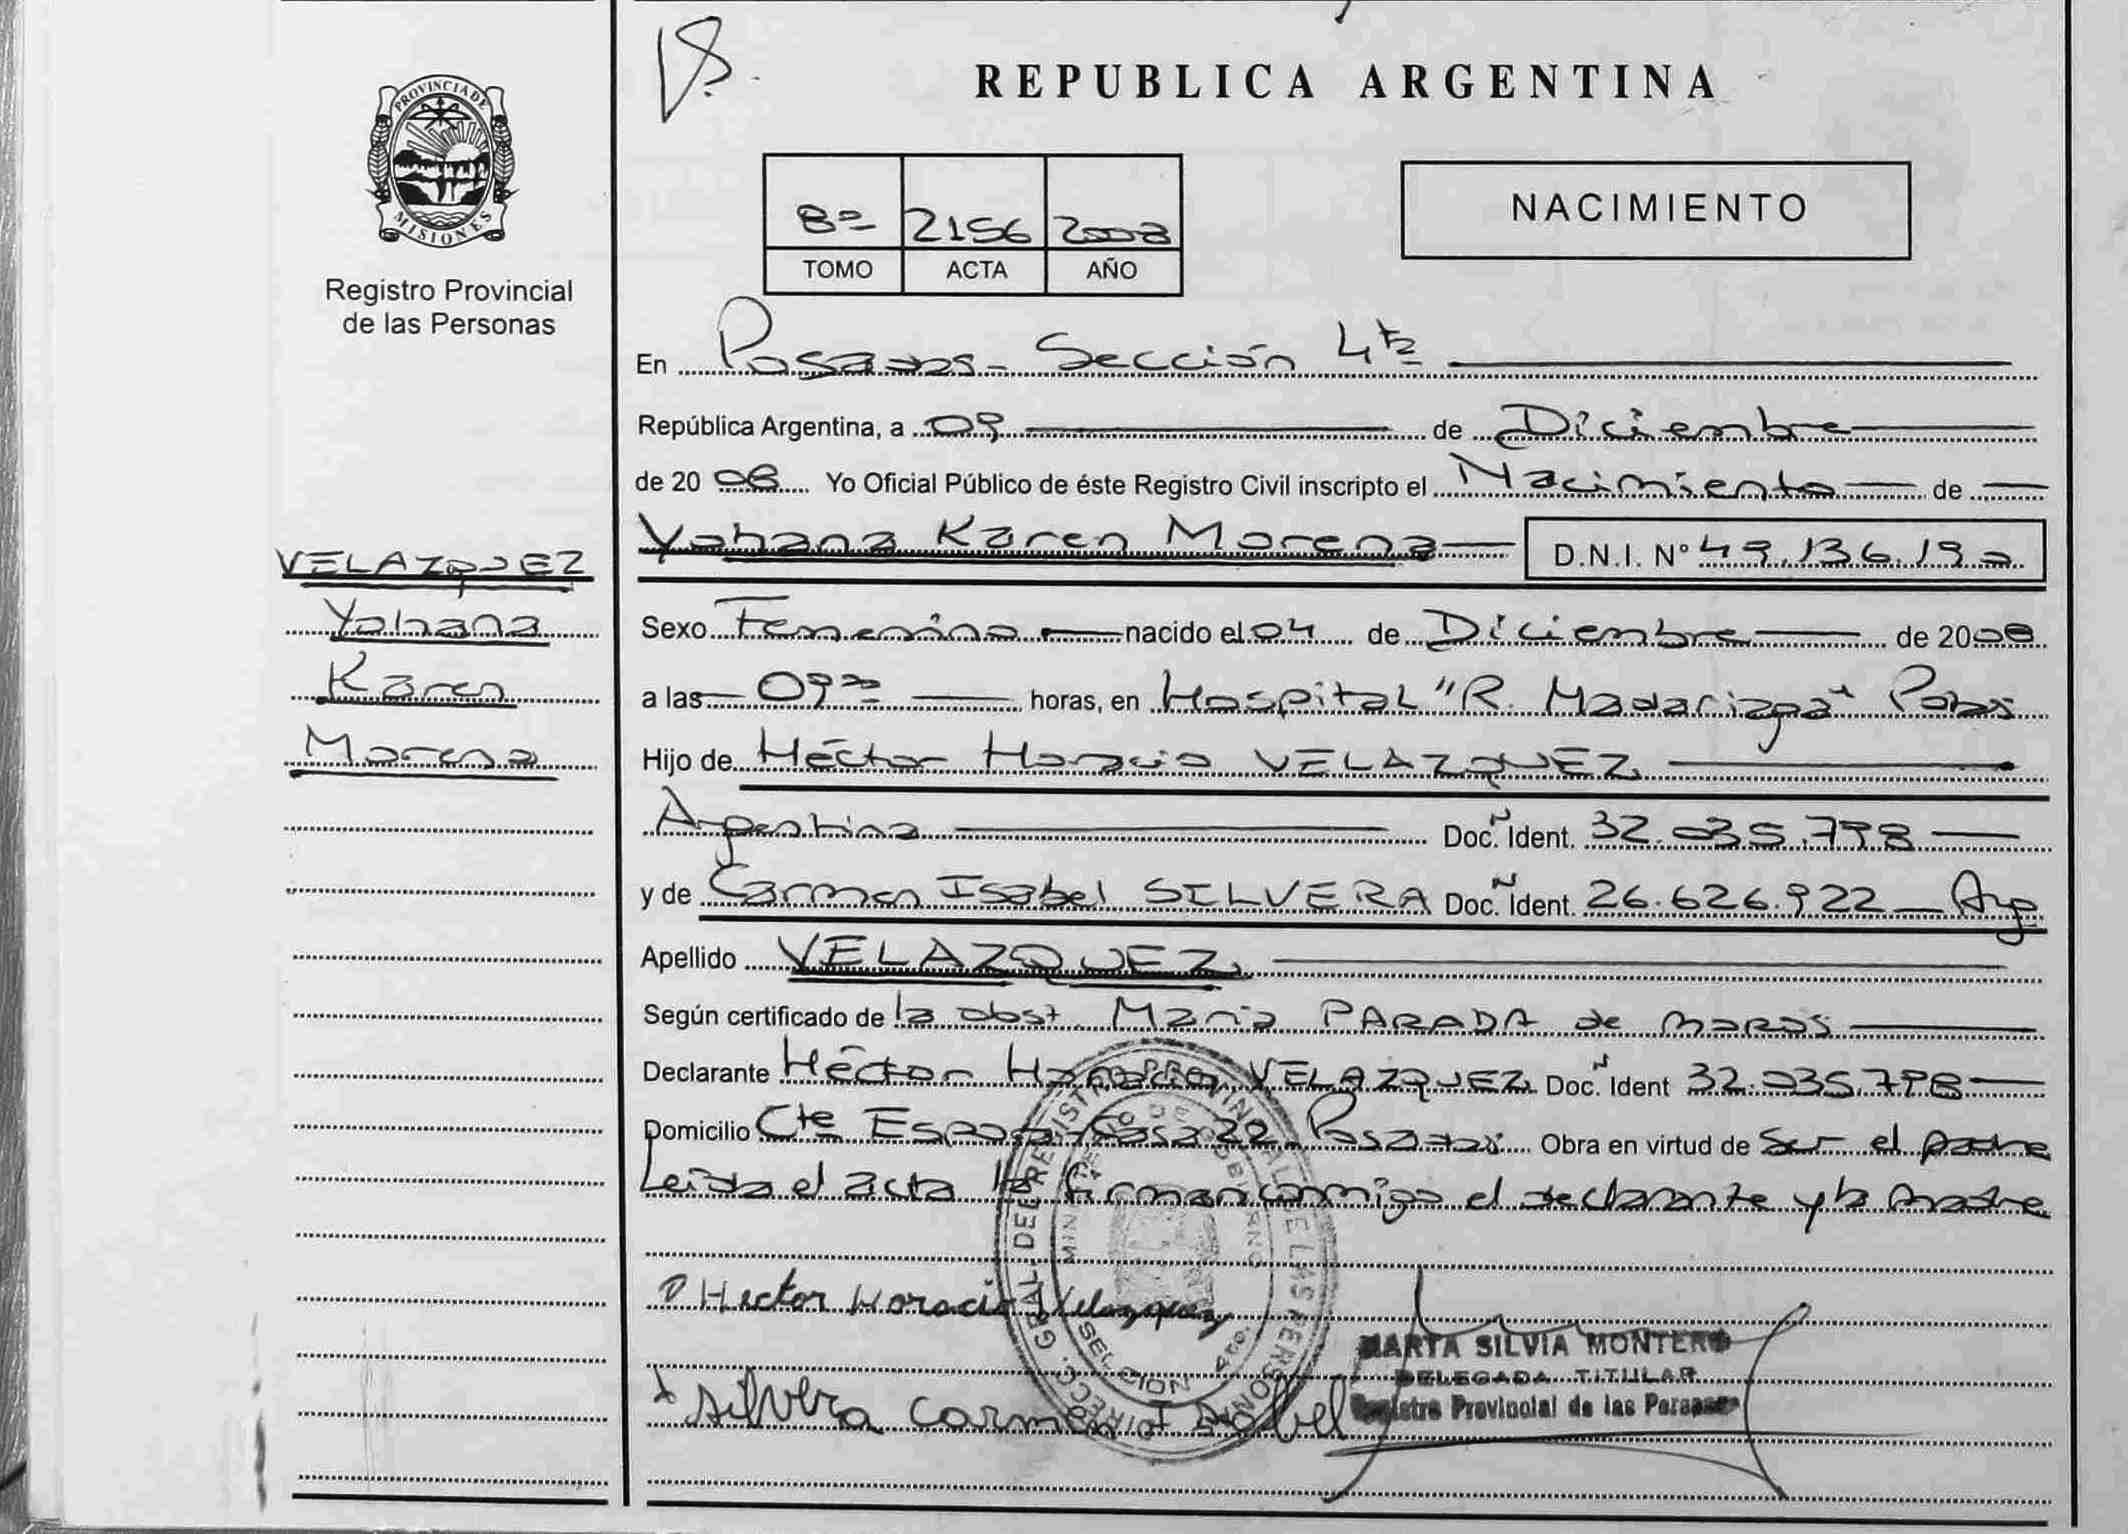 PROVINCIA DE
MISIONES
Registro Provincial
de las Personas
VELAZQUEZ
Yohana
Karen
Morena
REPUBLICA ARGENTINA
8º 2156 2008
TOMO ACTA AÑO
NACIMIENTO
En Posadas - Sección 4ta
República Argentina, a 09 de Diciembre
de 20 08 Yo Oficial Público de éste Registro Civil inscripto el Nacimiento de
Yohana Karen Morena D.N.I. Nº 49.136.190
Sexo Femenino nacido el 04 de Diciembre de 2008
a las 09 horas, en Hospital "R. Madariaga" Pdas
Hijo de Héctor Horacio VELAZQUEZ
Argentina Doc. Ident. 32.035.798
y de Carmen Isabel SILVERA Doc. Ident. 26.626.922 - Arg
Apellido VELAZQUEZ
Según certificado de la obst. María PARADA de
Declarante Héctor Horacio VELAZQUEZ Doc. Ident 32.035.798
Domicilio Cte Espora Casa 20 Posadas Obra en virtud de Ser el padre
Leída el acta la firman conmigo el declarante y la madre
Hector Horacio Velazquez
MARTA SILVIA MONTERO
DELEGADA TITULAR
Registro Provincial de las Personas
Silvera Carmen Isabel